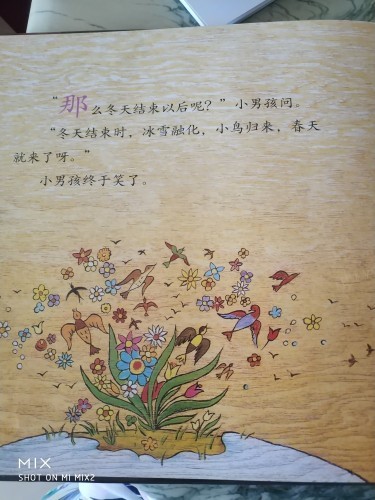 “那么冬天结束以后呢？”小男孩问。
“冬天结束时，冰雪融化，小鸟归来，春天
就来了呀。”
小男孩终于笑了。
MIX
SHOT ON MI MIX2